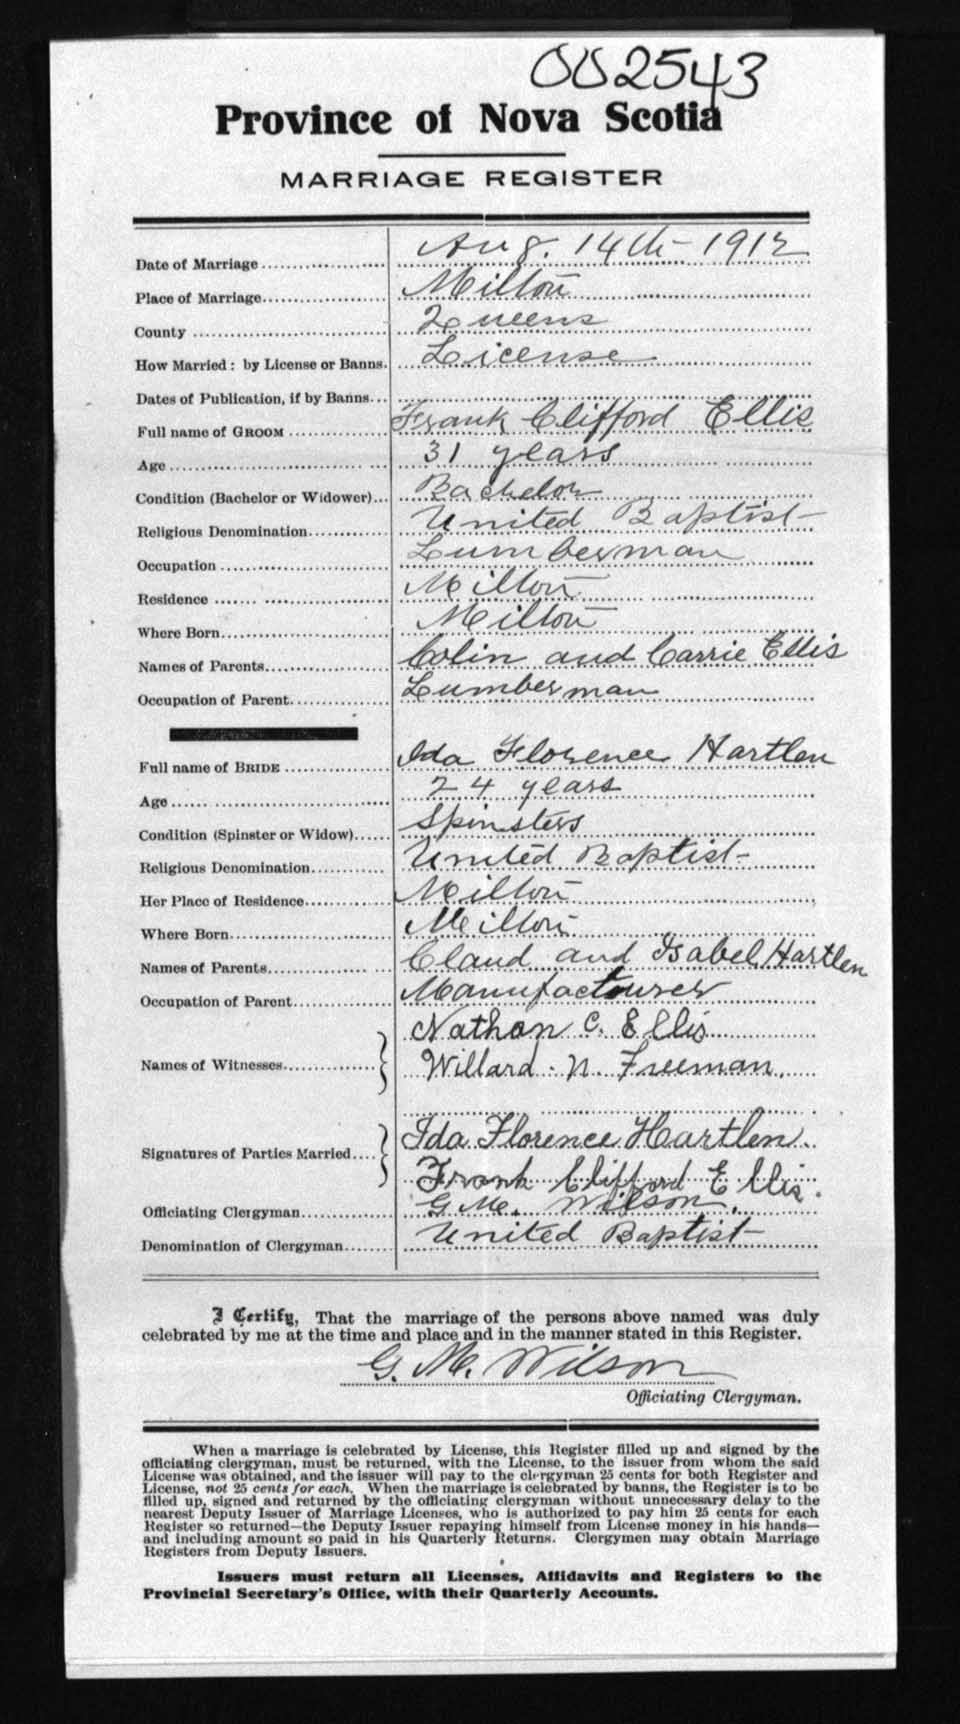 002543
Province of Nova Scotia
MARRIAGE REGISTER
Date of Marriage Aug. 14th 1912
Place of Marriage Milton
County Queens
How Married: by License or Banns. License
Dates of Publication, if by Banns
Full name of GROOM Frank Clifford Ellis
Age 31 years
Condition (Bachelor or Widower) Bachelor
Religious Denomination United Baptist
Occupation Lumberman
Residence Milton
Where Born Milton
Names of Parents Colin and Carrie Ellis
Occupation of Parent Lumberman
Full name of BRIDE Ida Florence Hartlen
Age 24 years
Condition (Spinster or Widow) Spinsters
Religious Denomination United Baptist
Her Place of Residence Milton
Where Born Milton
Names of Parents Claud and Isabel Hartlen
Occupation of Parent Manufactourer
Nathan C. Ellis
Names of Witnesses Willard N. Freeman
Ida Florence Hartlen
Signatures of Parties Married
Frank Clifford Ellis.
Officiating Clergyman G. M. Wilson.
Denomination of Clergyman United Baptist
I Certify, That the marriage of the persons above named was duly
celebrated by me at the time and place and in the manner stated in this Register.
G. M. Wilson
Officiating Clergyman.
When a marriage is celebrated by License, this Register filled up and signed by the
officiating clergyman, must be returned, with the License, to the issuer from whom the said
License was obtained, and the issuer will pay to the clergyman 25 cents for both Register and
License, not 25 cents for each. When the marriage is celebrated by banns, the Register is to be
filled up, signed and returned by the officiating clergyman without unnecessary delay to the
nearest Deputy Issuer of Marriage Licenses, who is authorized to pay him 25 cents for each
Register so returned—the Deputy Issuer repaying himself from License money in his hands—
and including amount so paid in his Quarterly Returns. Clergymen may obtain Marriage
Registers from Deputy Issuers.
Issuers must return all Licenses, Affidavits and Registers to the
Provincial Secretary's Office, with their Quarterly Accounts.